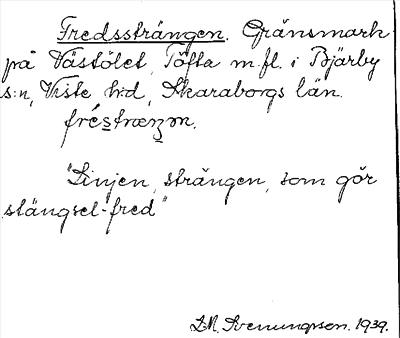 Fredssträngen. Gränsmark
på Västölet, Töfta m.fl. i Bjärby
s:n, Viste h:d, Skaraborgs län.
"Linjen, strängen, som gör
stängsel-fred"
Svenungsson. 1939.